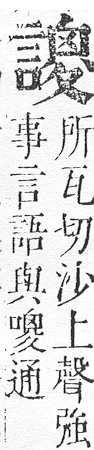 所瓦切沙上聲強
事言語與通